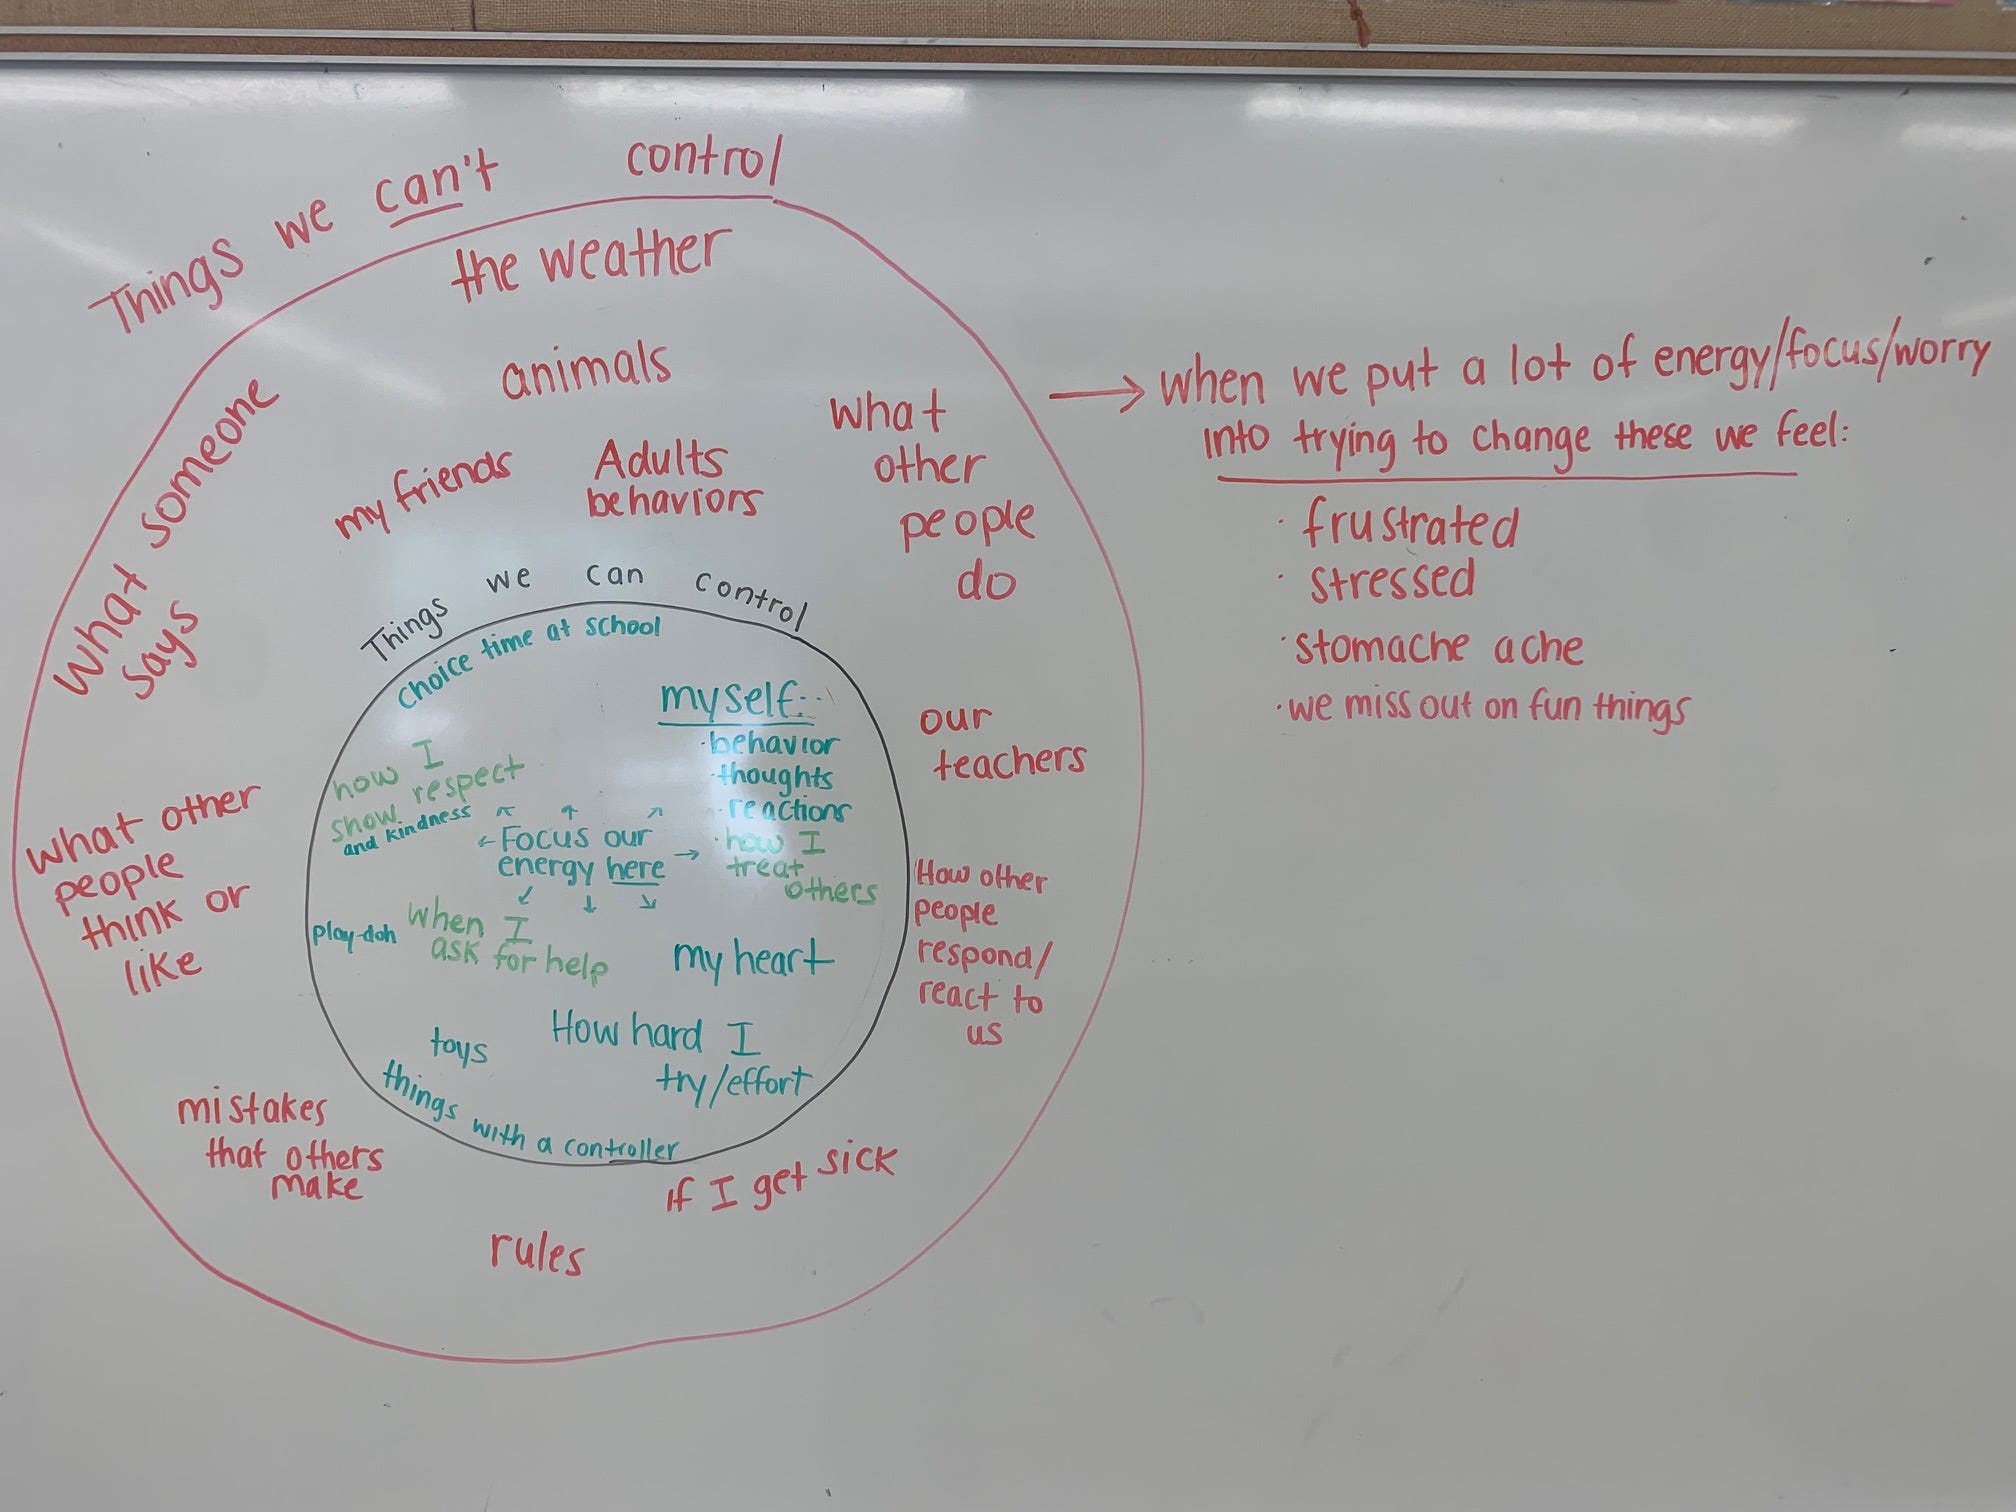 Things we can't control
the weather
animals
my friends
Adults
behaviors
what
other
people
do
What someone
says
our
teachers
what other
people
think or
like
How other
people
respond/
react to
us
mistakes
that others
make
if I get sick
rules
Things we can control
choice time at school
myself:
·behavior
·thoughts
·reactions
·how I
treat
others
how I
show respect
and kindness
Focus our
energy here
play-doh
when I
ask for help
my heart
toys
How hard I
try/effort
things with a controller
→ when we put a lot of energy/focus/worry
into trying to change these we feel:
· frustrated
· stressed
·stomache ache
·we miss out on fun things